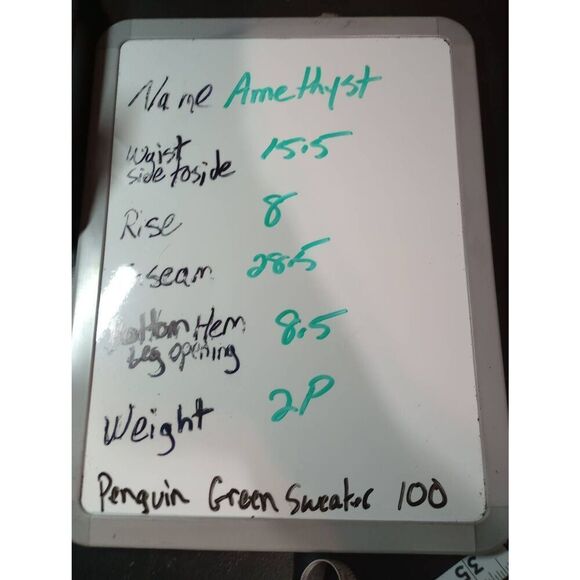 Name Amethyst
Waist 15.5
side to side
Rise 8
Inseam 28.5
Bottom Hem 8.5
Leg opening
Weight 2P
Penguin Green Sweater 100
35